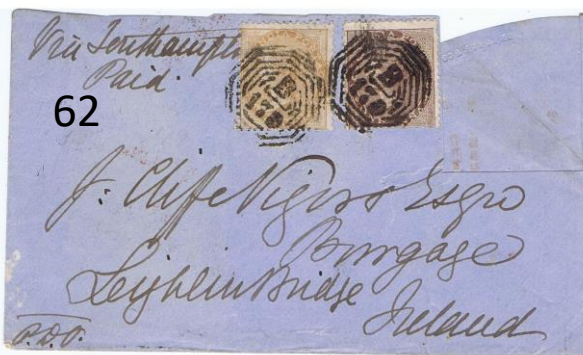 Via Southampton
Paid.
62
J. Cliffe Vigors Esqre
Burgage
Leighlin Bridge
Ireland
P.D.O.